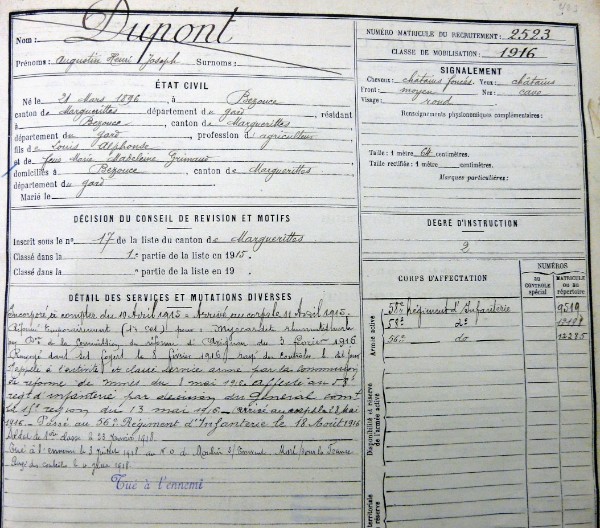 Nom : Dupont
Prénoms : Augustin Henri Joseph Surnoms :
NUMÉRO MATRICULE DU RECRUTEMENT : 2523
CLASSE DE MOBILISATION : 1916
ÉTAT CIVIL
Né le 21 Mars 1896, à Bezouce,
canton de Marguerittes, département du Gard, résidant
à Bezouce, canton de Marguerittes,
département du Gard, profession d'agriculteur
fils de Louis Alphonse
et de feue Marie Madeleine Grimaud
domiciliés à Bezouce, canton de Marguerittes
département du Gard
Marié le
SIGNALEMENT
Cheveux : châtains foncés Yeux : châtains
Front : moyen Nez : cavo
Visage : rond
Renseignements physionomiques complémentaires :
Taille : 1 mètre 64 centimètres.
Taille rectifiée : 1 mètre centimètres.
Marques particulières :
DÉCISION DU CONSEIL DE REVISION ET MOTIFS
Inscrit sous le n° 17 de la liste du canton de Marguerittes
Classé dans la 1e partie de la liste en 1915.
Classé dans la " partie de la liste en 19 .
DEGRÉ D'INSTRUCTION
2
DÉTAIL DES SERVICES ET MUTATIONS DIVERSES
Incorporé à compter du 10 Avril 1915 = Arrivé au corps le 11 Avril 1915.
Réformé temporairement pour : Myocardite
la Commission de réforme d'Avignon du 3 Février 1916
Renvoyé dans ses foyers le 8 Février 1916, rayé des contrôles le dit jour
Rappelé à l'activité et classé service armé par la commission
de réforme de Nîmes du 1 mai 1916. Affecté au 58e
régt d'infanterie par décision du Général comt
la 15e région du 13 mai 1916 - arrivé au corps le mai
1916. Passé au 56e Régiment d'Infanterie le 18 Août 1916
Soldat de 1ère classe le 23 Janvier 1918.
Tué à l'ennemi le 3 juillet 1918 au N. O de Mort pour la France
Rayé des contrôles le 1918
Tué à l'ennemi
CORPS D'AFFECTATION
NUMÉROS
DU CONTRÔLE spécial
MATRICULE OU AU répertoire
Armée active
58e Régiment d'Infanterie 9519
58e do
56e do 12275
Disponibilité et réserve de l'armée active
territoriale
réserve